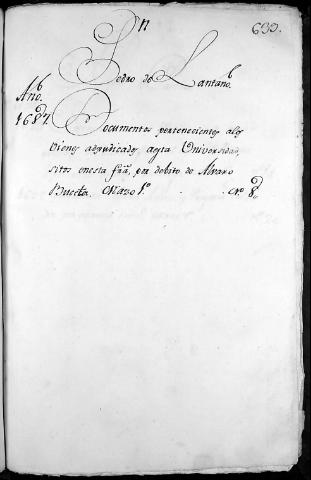 Sn 699.
Pedro de Lantano.
Año.
1687. Documentos pertenecientes alos
Vienes adjudicados aesta Universidad,
sitos enesta fra, por debito de Alvaro
Buelta. Mazo 1º. . . nº 8.